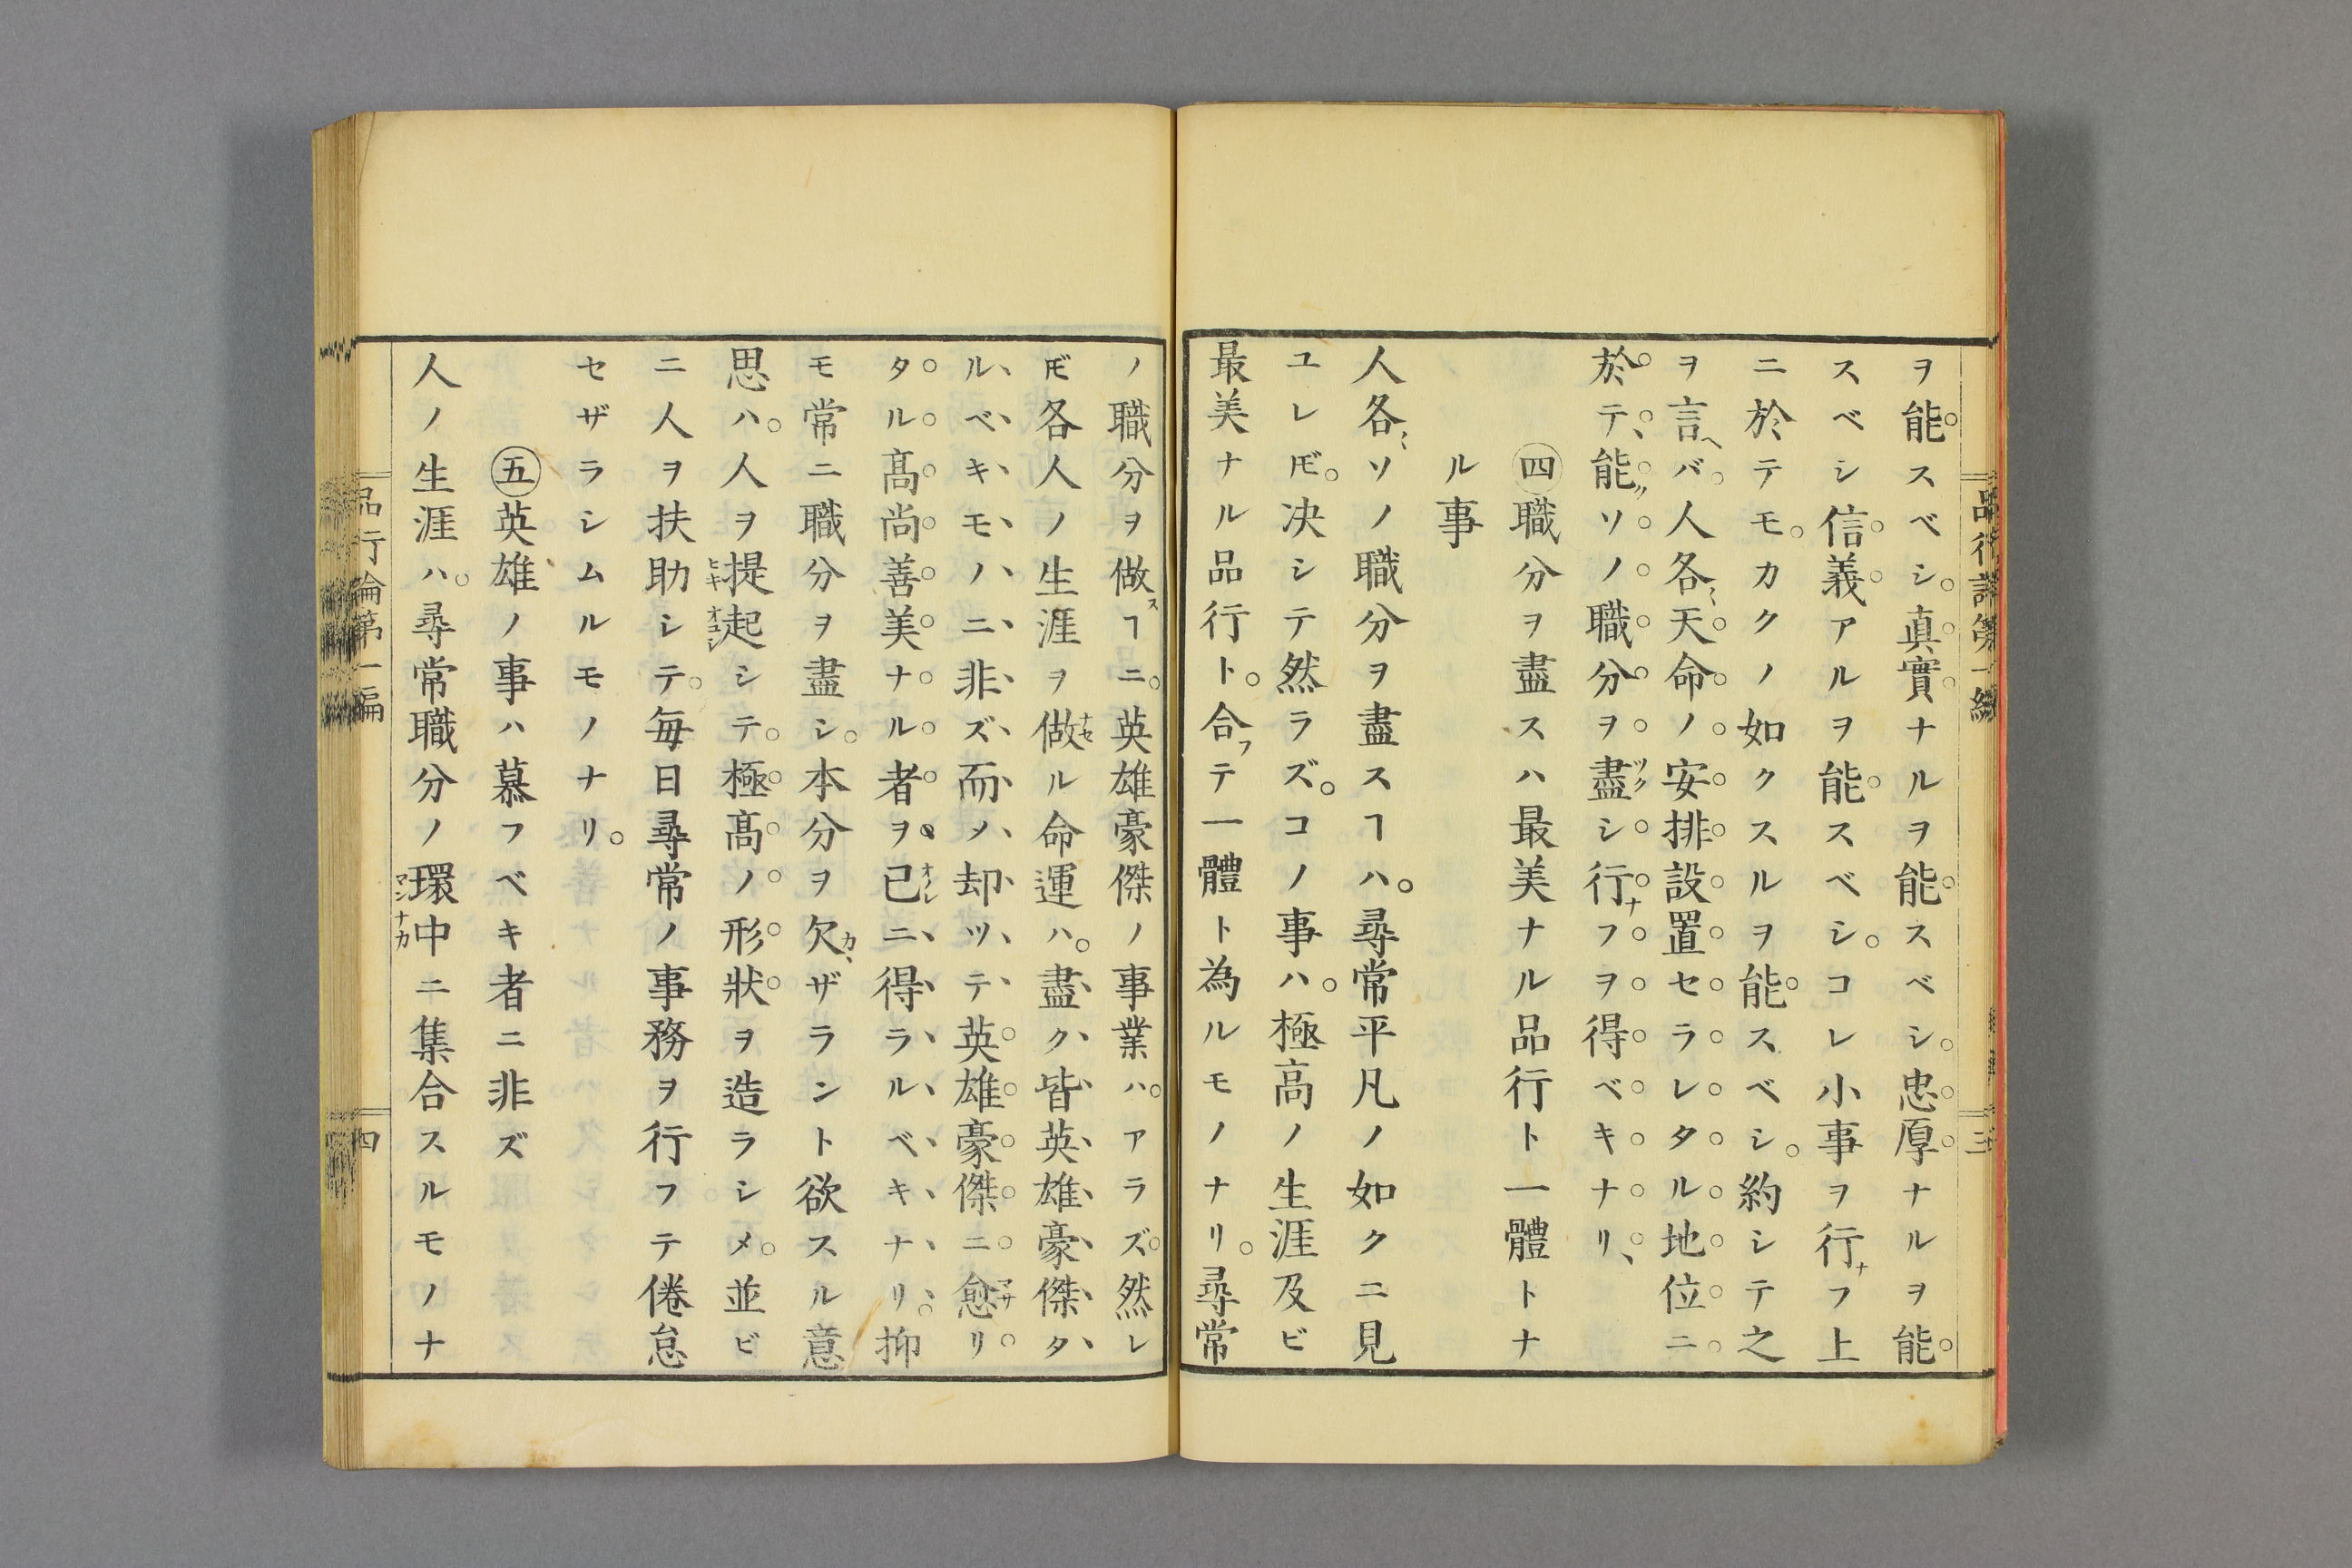 品行論第一編
三
ヲ能スベシ。真實ナルヲ能スベシ。忠厚ナルヲ能
スベシ信義アルヲ能スベシ。コレ小事ヲ行ナフ上
ニ於テモ。カクノ如クスルヲ能スベシ。約シテ之
ヲ言ヘバ。人各〻天命ノ安排設置セラレタル地位ニ
於テ、能クソノ職分ヲ盡ツクシ行ナフヲ得ベキナリ、
㊃職分ヲ盡スハ最美ナル品行ト一體トナ
ル事
人各〻ソノ職分ヲ盡スヿハ。尋常平凡ノ如クニ見
ユレ𪜈。决シテ然ラズ。コノ事ハ。極高ノ生涯及ビ
最美ナル品行ト。合フテ一體ト為ルモノナリ。尋常
ノ職分ヲ做スヿニ。英雄豪傑ノ事業ハ。アラズ。然レ
𪜈各人ノ生涯ヲ做ナセル命運ハ。盡ク皆英雄豪傑タ
ルベキモノニ非ズ、而〆却ツテ英雄豪傑ニ愈マサリ
タル髙尚善美ナル者ヲ。己オノレニ得ラルベキナリ。抑
モ常ニ職分ヲ盡シ。本分ヲ欠カヽザラント欲スル意
思ハ。人ヲ提起ヒキオコシシテ。極髙ノ形狀ヲ造ラシメ。並ビ
ニ人ヲ扶助シテ。毎日尋常ノ事務ヲ行フテ倦怠
セザラシムルモノナリ。
㊄英雄ノ事ハ慕フベキ者ニ非ズ
人ノ生涯ハ。尋常職分ノ環中マンナカニ集合スルモノナ
品行論第一編
四